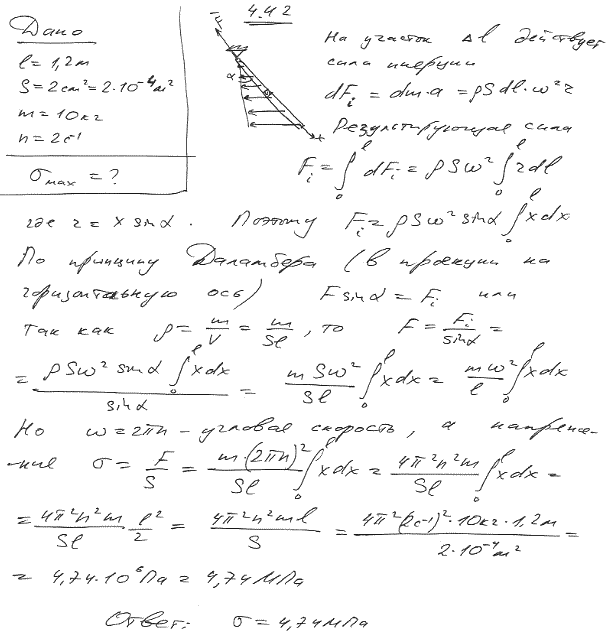 4.42
Дано
l = 1,2 м
S = 2 см² = 2·10⁻⁴ м²
m = 10 кг
n = 2 c⁻¹
σmax = ?
F
α
x
На участок Δl действует
сила инерции
dFi = dm·a = ρSdl·ω²r
Результирующая сила
Fi = ∫₀ˡ dFi = ρSω² ∫₀ˡ rdl
где r = x sinα. Поэтому Fi = ρSω² sinα ∫₀ˡ xdx
По принципу Даламбера (в проекции на
горизонтальную ось) F sinα = Fi или
так как ρ = m/V = m/Sl, то F = Fi/sinα =
= ρSω² sinα ∫₀ˡ xdx / sinα = mSω²/Sl ∫₀ˡ xdx = mω²/l ∫₀ˡ xdx
Но ω = 2πn – угловая скорость, а напряже-
ние σ = F/S = m·(2πn)²/Sl ∫₀ˡ xdx = 4π²n²m/Sl ∫₀ˡ xdx =
= 4π²n²m/Sl · l²/2 = 4π²n²ml/S = 4π²(2c⁻¹)²·10кг·1,2м / 2·10⁻⁴м² =
= 4,74·10⁶ Па = 4,74 МПа
Ответ: σ = 4,74 МПа